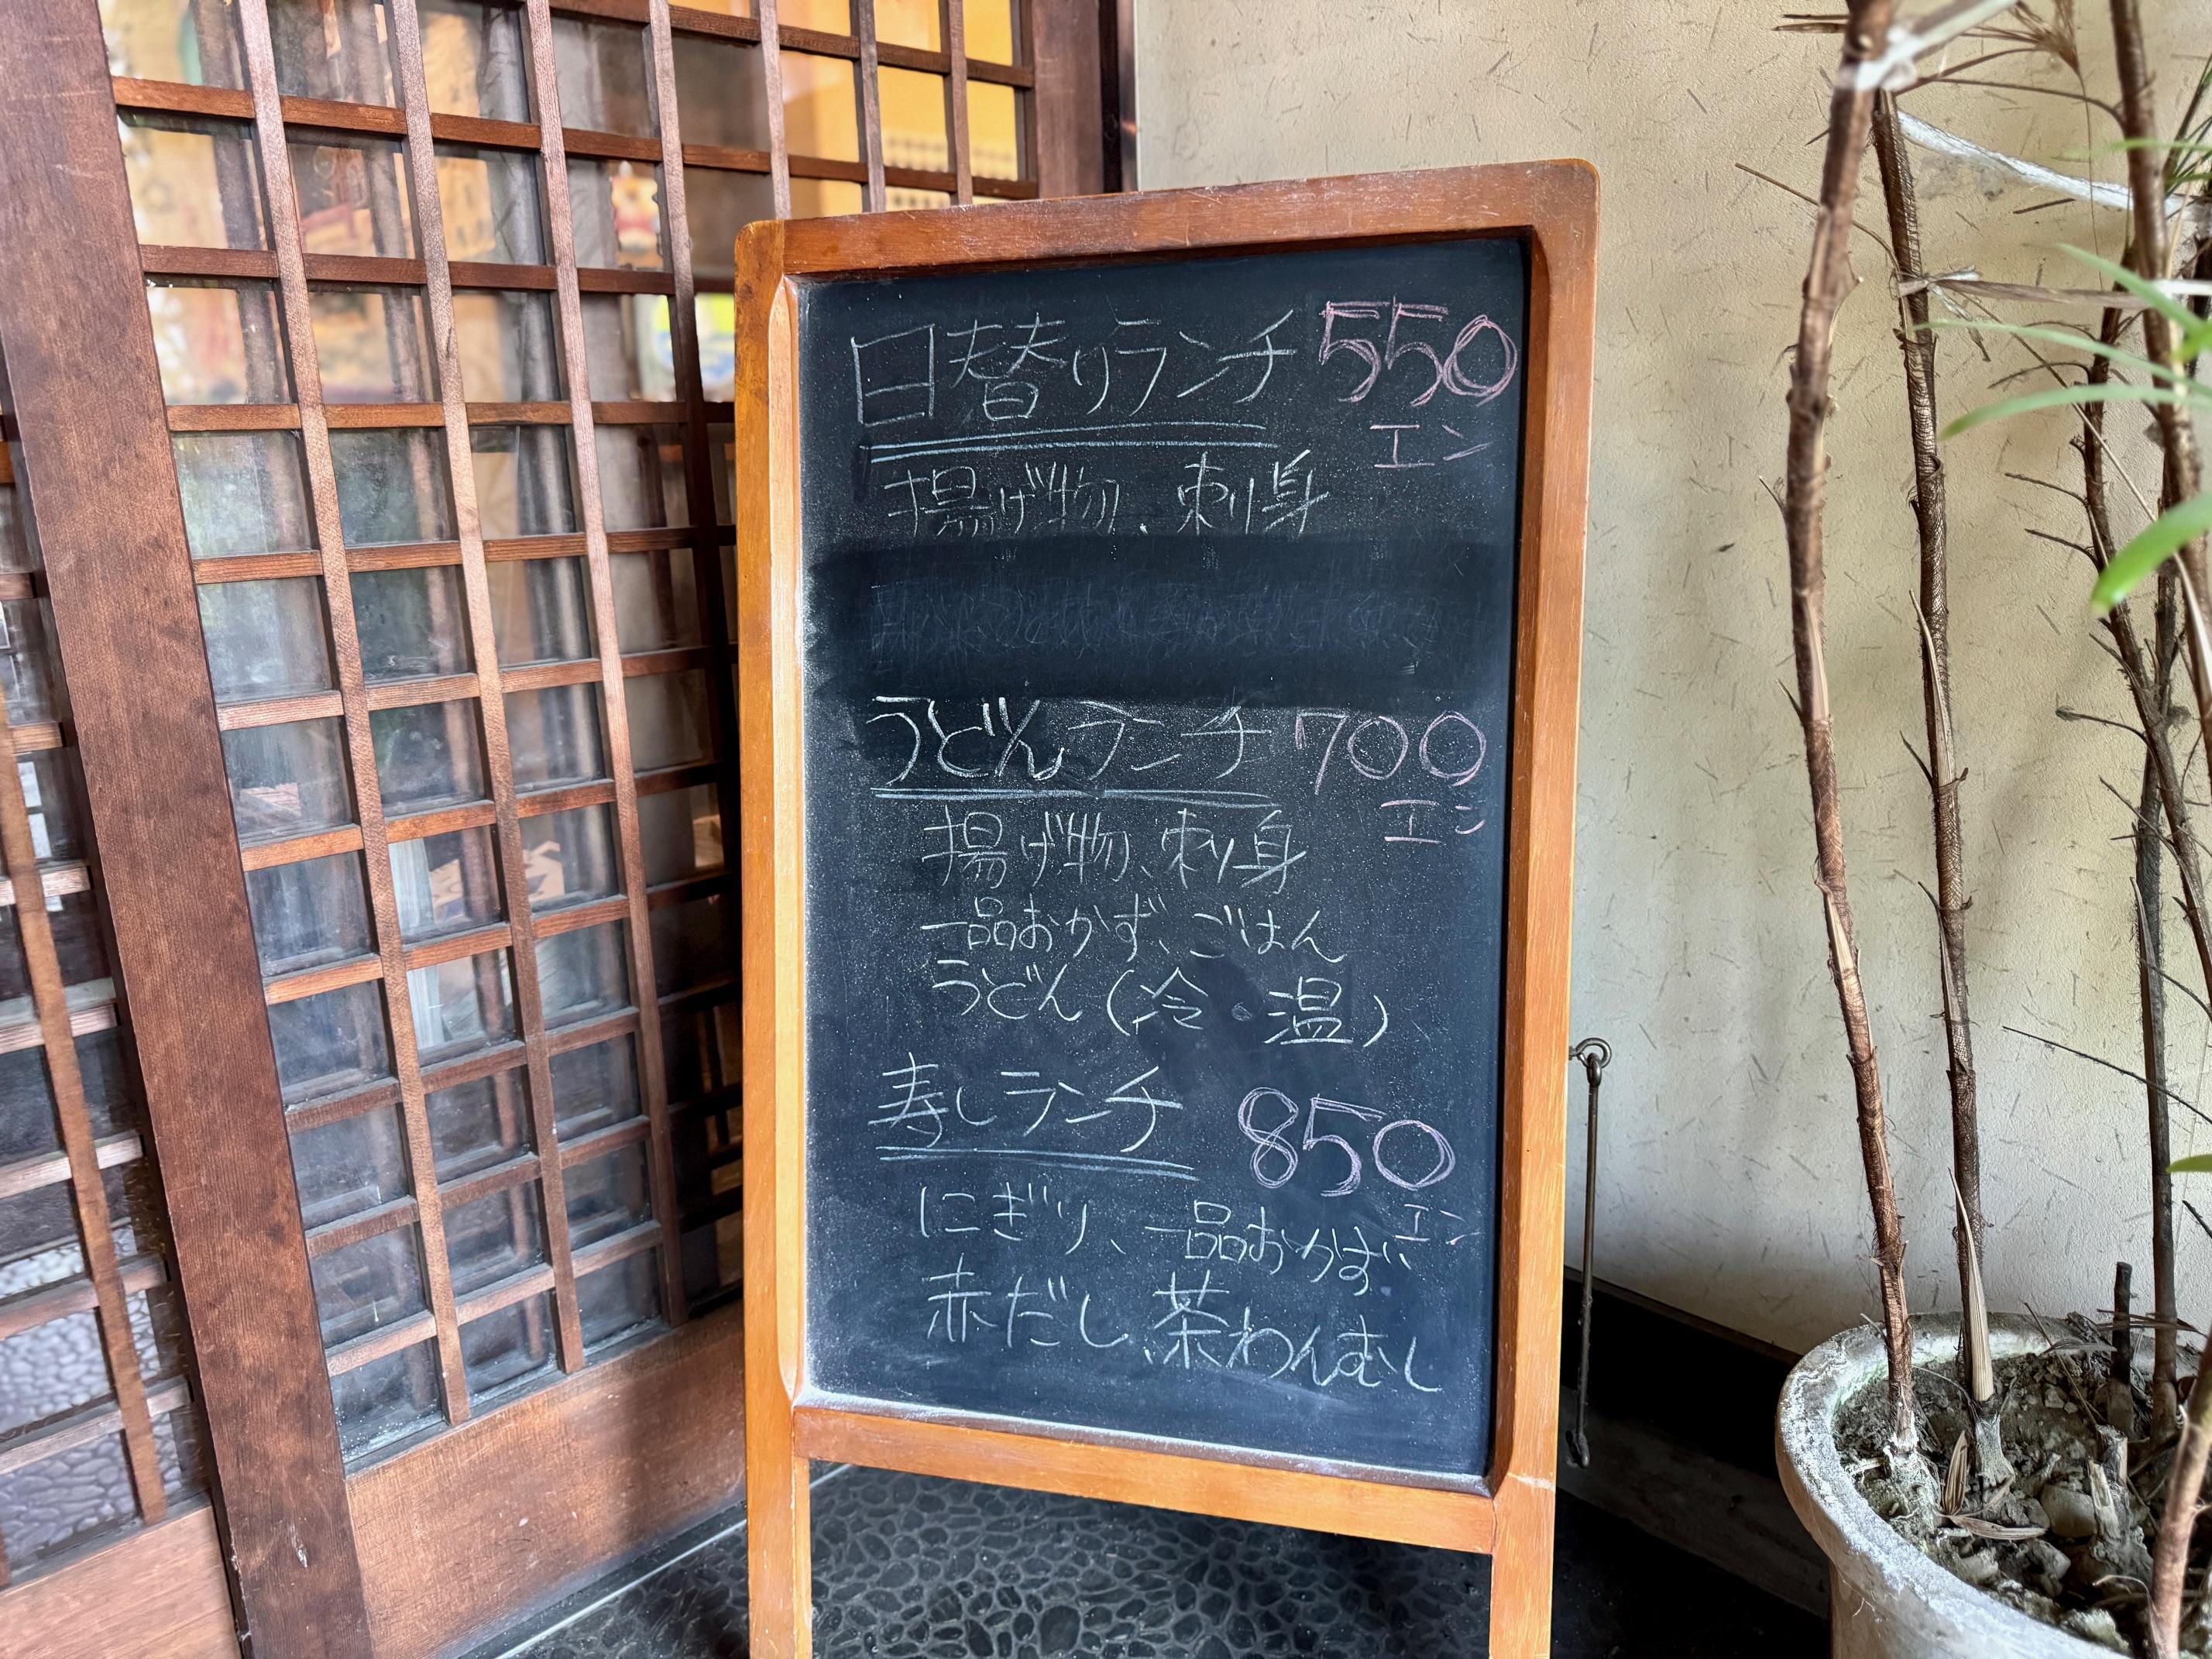 日替りランチ 550
エン
揚げ物、刺身
うどんランチ 700
エン
揚げ物、刺身
一品おかず、ごはん
うどん(冷・温)
寿しランチ 850
エン
にぎり、一品おかず
赤だし、茶わんむし